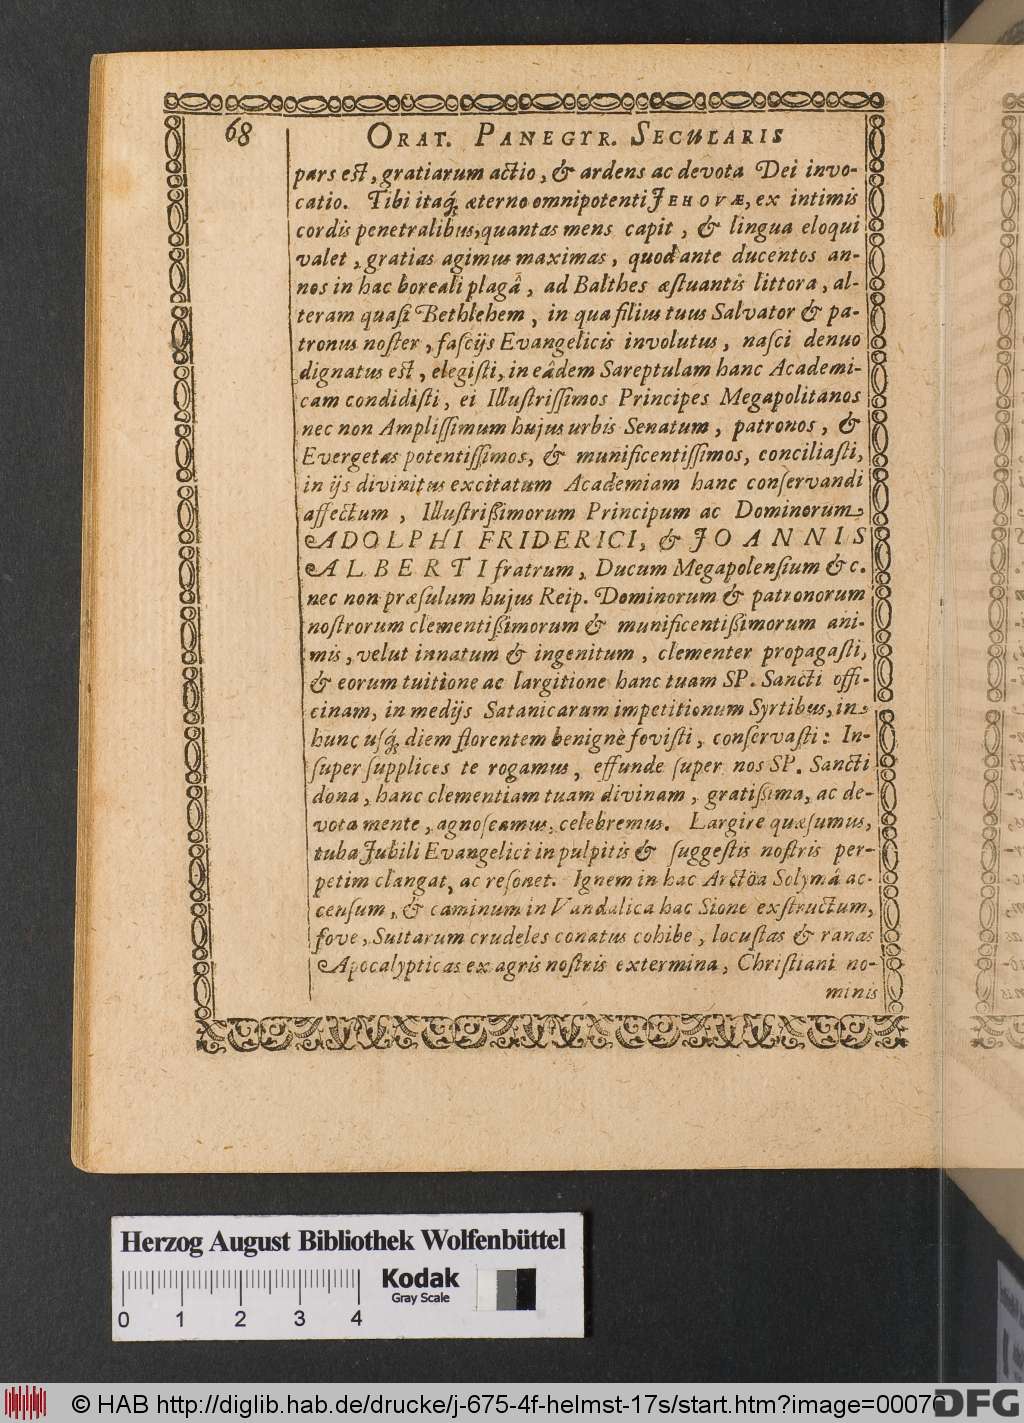 68
ORAT. PANEGYR. SECULARIS
pars est, gratiarum actio, & ardens ac devota Dei invo-
catio. Tibi itaq́; æterno omnipotenti JEHOVÆ, ex intimis
cordis penetralibus, quantas mens capit, & lingua eloqui
valet, gratias agimus maximas, quod ante ducentos an-
nos in hac boreali plagâ, ad Balthes æstuantis littora, al-
teram quasi Bethlehem, in qua filius tuus Salvator & pa-
tronus noster, fascijs Evangelicis involutus, nasci denuo
dignatus est, elegisti, in eâdem Sareptulam hanc Academi-
cam condidisti, ei Illustrissimos Principes Megapolitanos
nec non Amplissimum hujus urbis Senatum, patronos, &
Evergetas potentissimos, & munificentissimos, conciliasti,
in ijs divinitus excitatum Academiam hanc conservandi
affectum, Illustrißimorum Principum ac Dominorum
ADOLPHI FRIDERICI, & JOANNIS
ALBERTI fratrum, Ducum Megapolensium &c.
nec non præsulum hujus Reip. Dominorum & patronorum
nostrorum clementißimorum & munificentißimorum ani-
mis, velut innatum & ingenitum, clementer propagasti,
& eorum tuitione ac largitione hanc tuam SP. Sancti offi-
cinam, in medijs Satanicarum impetitionum Syrtibus, in
hunc usq́; diem florentem benignè fovisti, conservasti: In-
super supplices te rogamus, effunde super nos SP. Sancti
dona, hanc clementiam tuam divinam, gratißima, ac de-
vota mente, agnoscamus, celebremus. Largire quæsumus,
tuba Jubili Evangelici in pulpitis & suggestis nostris per-
petim clangat, ac resonet. Ignem in hac Arctöa Solymâ ac-
censum, & caminum in Vandalica hac Sione exstructum,
fove, Suitarum crudeles conatus cohibe, locustas & ranas
Apocalypticas ex agris nostris extermina, Christiani no-
minis
Herzog August Bibliothek Wolfenbüttel
Kodak
Gray Scale
0 1 2 3 4
© HAB http://diglib.hab.de/drucke/j-675-4f-helmst-17s/start.htm?image=00076
DFG